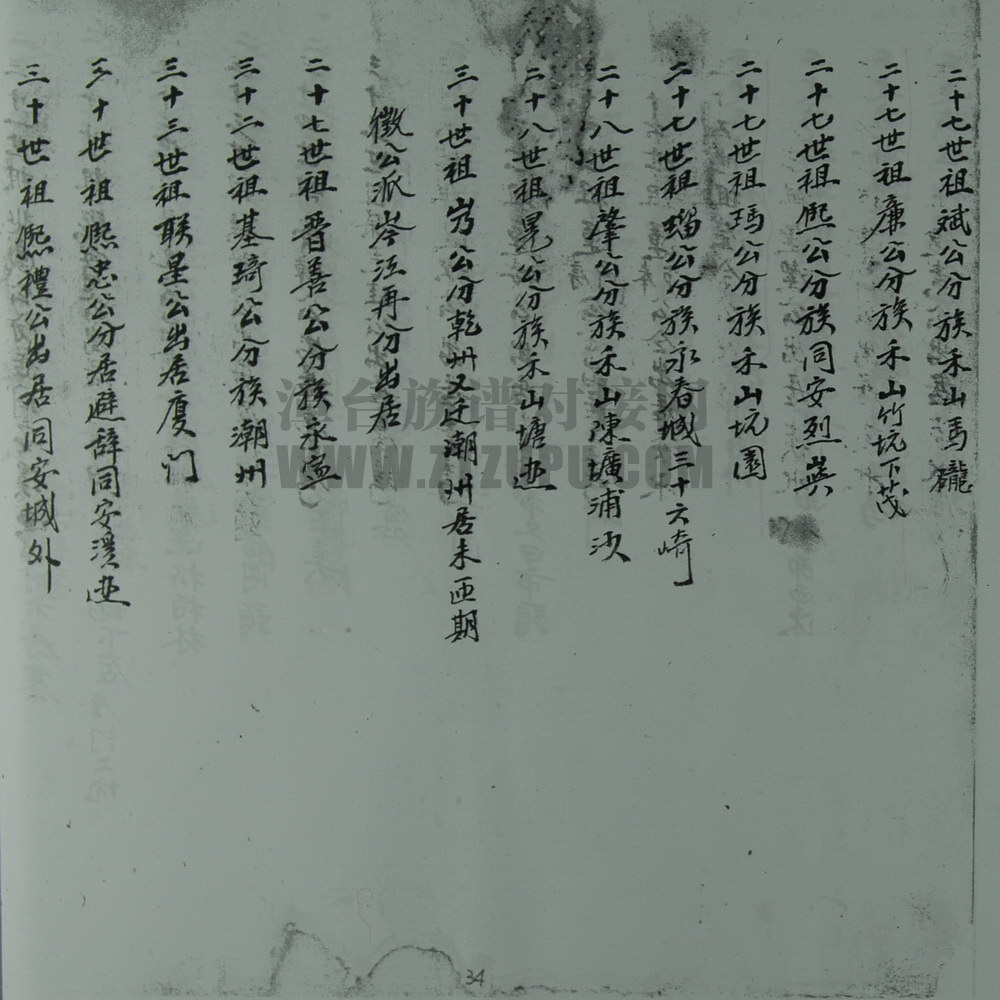 二十七世祖斌公分族禾山馬
二十七世祖康公分族禾山竹坑下茂
二十七世祖熙公分族同安烈
二十七世祖瑪公分族禾山坑園
二十七世祖瑠公分族永春城三十六崎
二十八世祖肇公分族禾山陳壙浦
二十八世祖晃公分族禾山塘
三十世祖公分乾州又迁潮州居未
徵公派岑江再分出居
二十七世祖晋善公分族永
三十二世祖基琦公分族潮州
三十三世祖联星公出居厦门
三十世祖熙忠公分居避辞同安
三十世祖熙禮公出居同安城外
漳台族谱对接网
WWW.ZTZUPU.COM
34